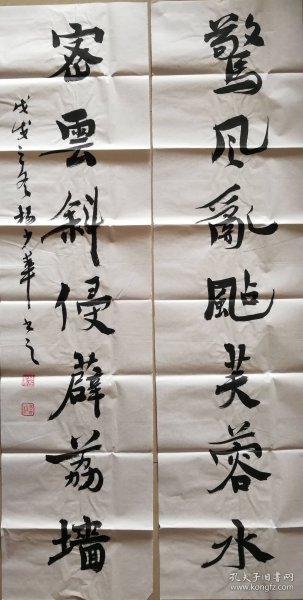 驚風亂颭芙蓉水
密雲斜侵薜荔墙
戊戌之冬杨少華书之
孔夫子旧书网
www.kongfz.com